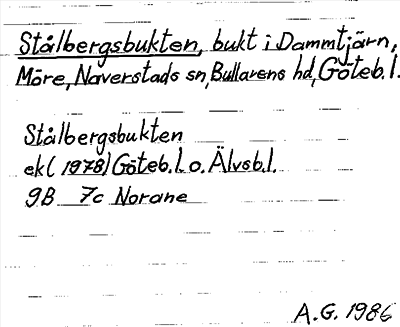 Stålbergsbukten, bukt i Dammtjärn,
Möre, Naverstads sn, Bullarens hd, Göteb.l.
Stålbergsbukten
ek (1978) Göteb.l.o. Älvsb.l.
9B 7c Norane
A.G. 1986